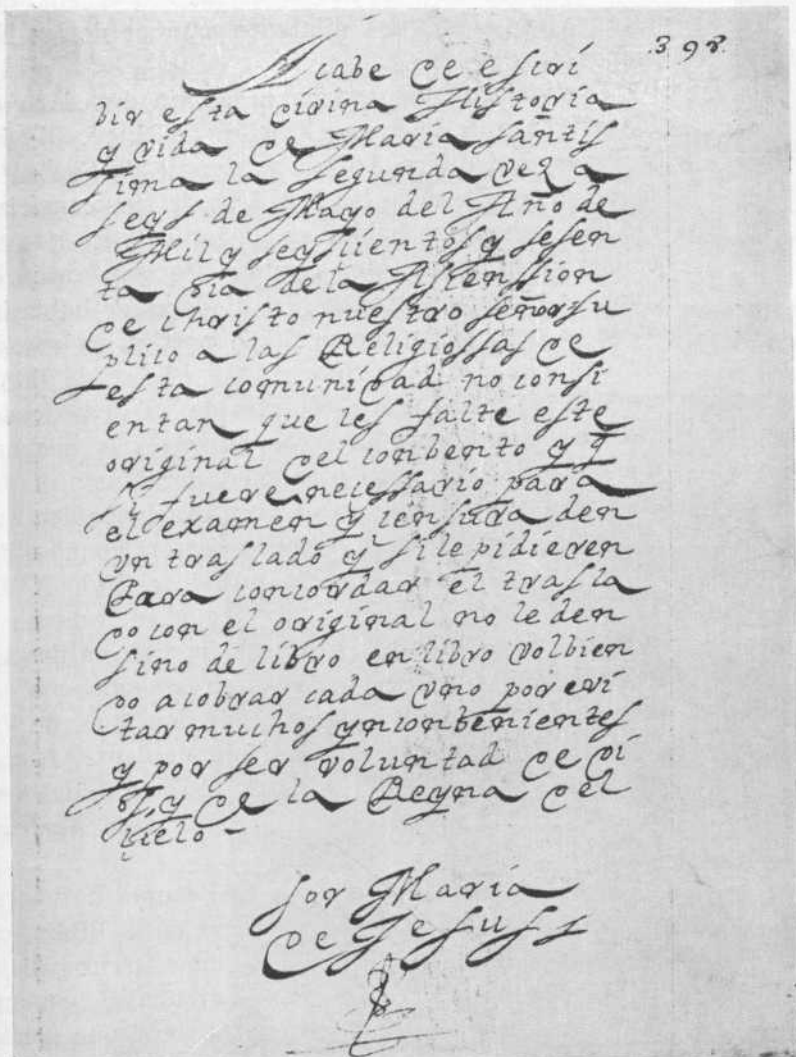 398
Acabe de escri
bir esta divina Historia
y vida de Maria santis
sima la segunda vez a
seys de Mayo del Año de
Mil y seysçientos y sesen
ta dia de la Ascenssion
de christo nuestro señor su
plico a las Religiossas de
esta comunidad no consi
entan que les falte este
original del conbento y q̄
si fuere necessario para
el examen y censura den
un traslado y si le pidieren
Para concordar el trasla
do con el original no le den
sino de libro en libro volbien
do a cobrar cada uno por evi
tar muchos ynconbenientes
y por ser voluntad de Di
os, y de la Reyna del
Cielo-
sor Maria
de Jesus